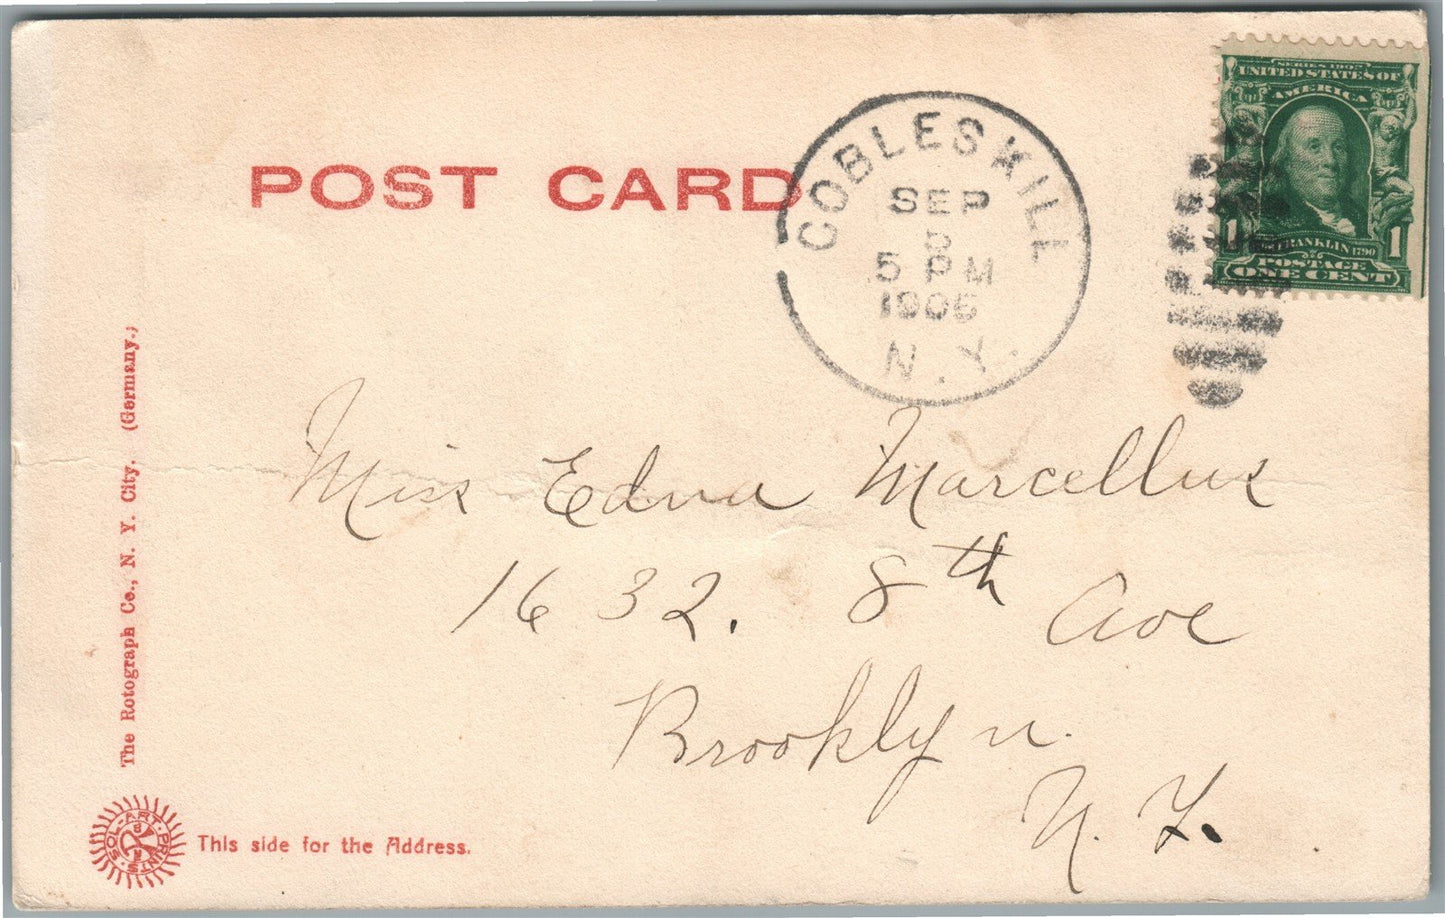 POST CARD
COBLESKILL
SEP
5
5 PM
1905
N.Y.
SERIES 1902
UNITED STATES OF
AMERICA
FRANKLIN 1790
1 1
POSTAGE
ONE CENT
Miss Edna Marcellus
1632. 8th Ave
Brooklyn.
N. Y.
The Rotograph Co., N. Y. City. (Germany.)
SOL-ART-PRINTS
This side for the Address.